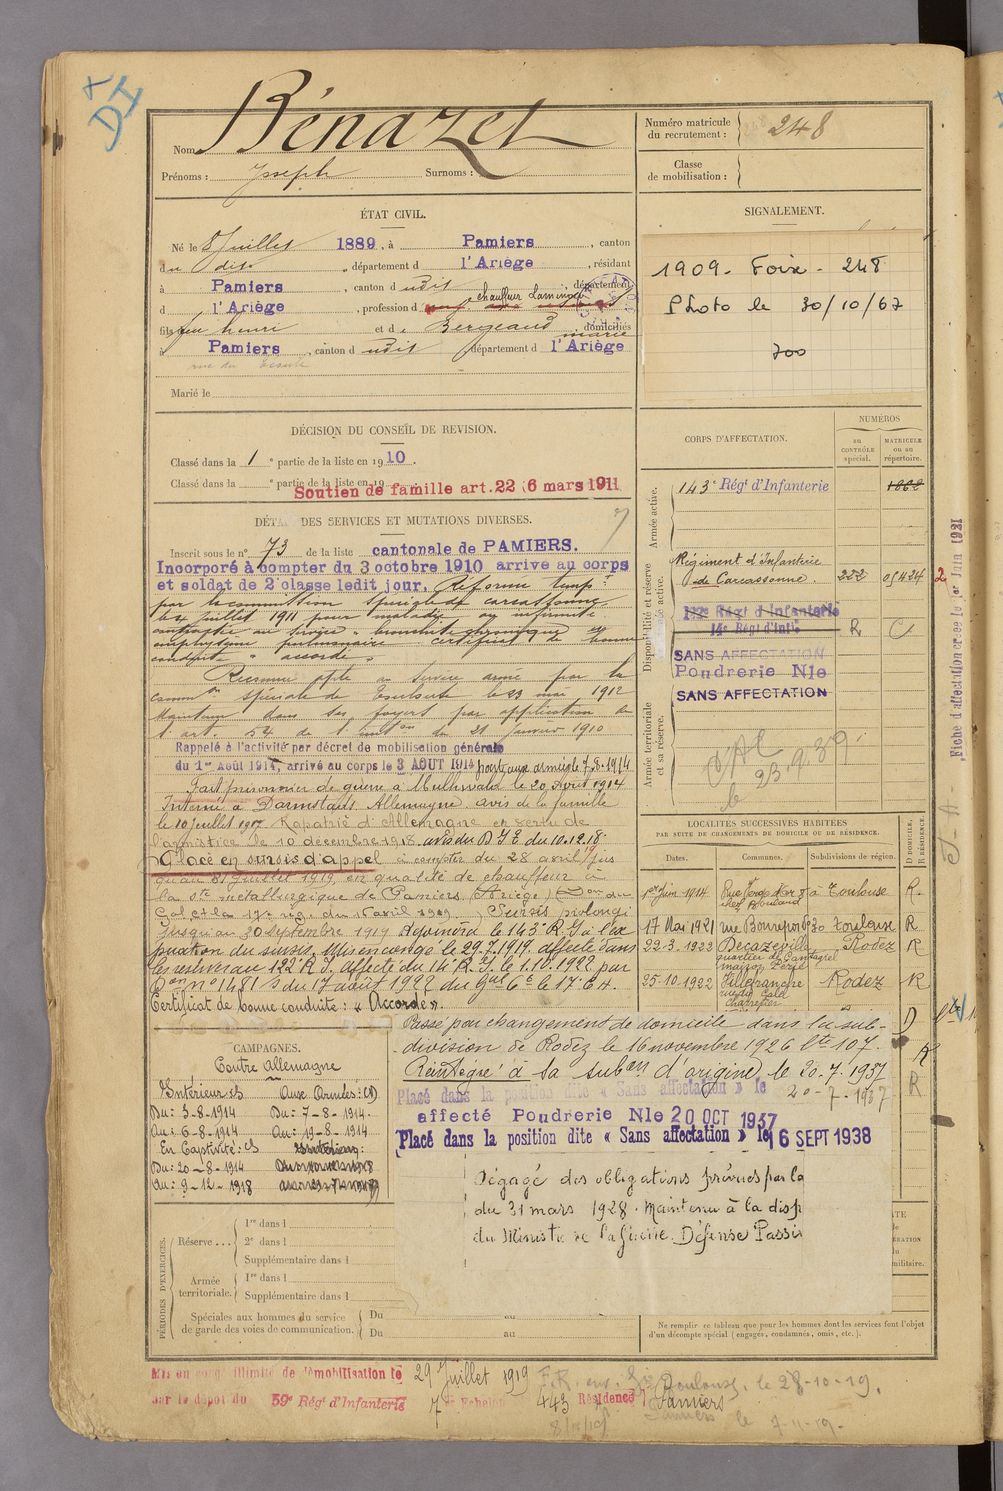 DI
Nom Bénazet
Prénoms : Joseph Surnoms :
Numéro matricule du recrutement : 248
Classe de mobilisation :
ÉTAT CIVIL.
Né le 8 Juillet 1889, à Pamiers, canton
du dit, département d l'Ariège, résidant
à Pamiers, canton d udit, département
d l'Ariège, profession d chauffeur Laminage
fils feu henri et de Bergeaud marie, domiciliés
à Pamiers, canton d udit, département d l'Ariège
rue du
Marié le
SIGNALEMENT.
1909 - Foix - 248
Photo le 30/10/67
700
DÉCISION DU CONSEIL DE REVISION.
Classé dans la 1e partie de la liste en 1910.
Classé dans la e partie de la liste en 19
Soutien de famille art. 22 6 mars 1911
DÉTAIL DES SERVICES ET MUTATIONS DIVERSES.
Inscrit sous le n° 73 de la liste cantonale de PAMIERS.
Incorporé à compter du 3 octobre 1910 arrivé au corps
et soldat de 2e classe ledit jour. Réformé temp.t
par la commission spéciale de carcassonne
le 4 Juillet 1911 pour maladie ou infirmité
contractée au service « bronchite chronique et
emphysème pulmonaire certificat de bonne
conduite « accordé »
Reconnu apte au service armé par la
comm.on spéciale de Toulouse le 23 mai 1912
Maintenu dans ses foyers par application de
l'art. 54 de l' du 21 janvier 1910
Rappelé à l'activité par décret de mobilisation générale
du 1er Août 1914, arrivé au corps le 3 AOUT 1914 parti aux armées le 7.8.1914
Fait prisonnier de guerre à le 20 Août 1914
Interné à Darmstadt Allemagne avis de la famille
le 10 juillet 1917 Rapatrié d'Allemagne en vertu de
l'armistice le 10 décembre 1918. avis du D.I.E. du 10.12.18.
Placé en sursis d'appel à compter du 28 avril 19 jus
qu'au 31 Juillet 1919, en qualité de chauffeur à
la sté métallurgique de Pamiers (Ariège)
Gal et la 17e rég. du 16 avril 1919. Sursis prolongé
jusqu'au 30 Septembre 1919 Rejoindra le 143e R.I. à l'ex
piration du sursis. Mis en congé le 29.7.1919. affecté dans
les réserves au 122e R.I. Affecté du 14 R.I. le 1.10.1922 par
n° 1481/S du 17 août 1922 du Gal Ct le 17e C.A.
Certificat de bonne conduite : « Accordé ».
CORPS D'AFFECTATION.
NUMÉROS
au CONTRÔLE spécial.
MATRICULE ou au répertoire.
Armée active.
143e Régt d'Infanterie 1868
Disponibilité et réserve de l'armée active.
Régiment d'Infanterie
de Carcassonne. 222 05424
122e Régt d'Infanterie
14e Régt d'Infie R
SANS AFFECTATION
Poudrerie Nle
SANS AFFECTATION
Armée territoriale et sa réserve.
le 23.9.39
Fiche d'affectation créée le 1er Juin 1921
LOCALITÉS SUCCESSIVES HABITÉES
PAR SUITE DE CHANGEMENTS DE DOMICILE OU DE RÉSIDENCE.
Dates. Communes. Subdivisions de région. D DOMICILE. R RÉSIDENCE.
1er Juin 1914 à Toulouse R.
17 Mai 1921 rue Bonrepos 30 Toulouse R
22-3. 1922 Decazeville Rodez R
25-10.1922 Villefranche Rodez R
CAMPAGNES.
Contre Allemagne
Intérieur : Aux Armées :
Du : 3-8-1914 Du : 7-8-1914.
Au : 6-8-1914 Au : 19-8-1914
En Captivité :
Du : 20-8-1914
Au : 9-12-1918
Passé par changement de domicile dans la sub-
division de Rodez le 16 novembre 1926 107. D
Réintégré à sa subon d'origine, le 20.7.1937 R
Placé dans la position dite « Sans affectation » le 20-7-1937 R
affecté Poudrerie Nle 20 OCT 1937
Placé dans la position dite « Sans affectation » le 16 SEPT 1938
Dégagé des obligations prévues par la
du 31 mars 1928. Maintenu à la disp
du Ministre de la Guerre. Défense Passiv
PÉRIODES D'EXERCICES.
Réserve . . . 1re dans l
2e dans l
Supplémentaire dans l
Armée territoriale. 1re dans l
Supplémentaire dans l
Spéciales aux hommes du service de garde des voies de communication. Du au
Du au
Ne remplir ce tableau que pour les hommes dont les services font l'objet
d'un décompte spécial (engagés, condamnés, omis, etc.).
Mis en congé illimité de démobilisation le 29 Juillet 1919
sur le dépôt du 59e Régt d'Infanterie 7e Échelon 443 Résidence Pamiers
Toulouse, le 28-10-19.
Pamiers le 7-11-19.